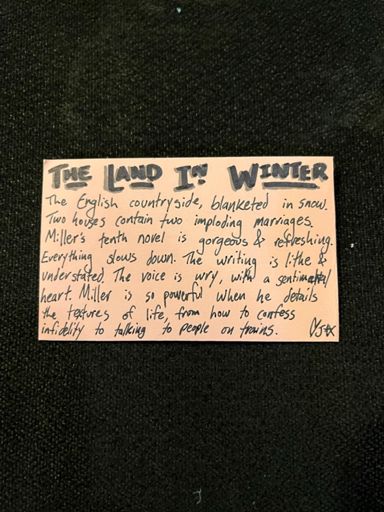 THE LAND IN WINTER
The English countryside, blanketed in snow.
Two houses contain two imploding marriages.
Miller's tenth novel is gorgeous & refreshing.
Everything slows down. The writing is lithe &
understated. The voice is wry, with a sentimental
heart. Miller is so powerful when he details
the textures of life, from how to confess
infidelity to talking to people on trains.